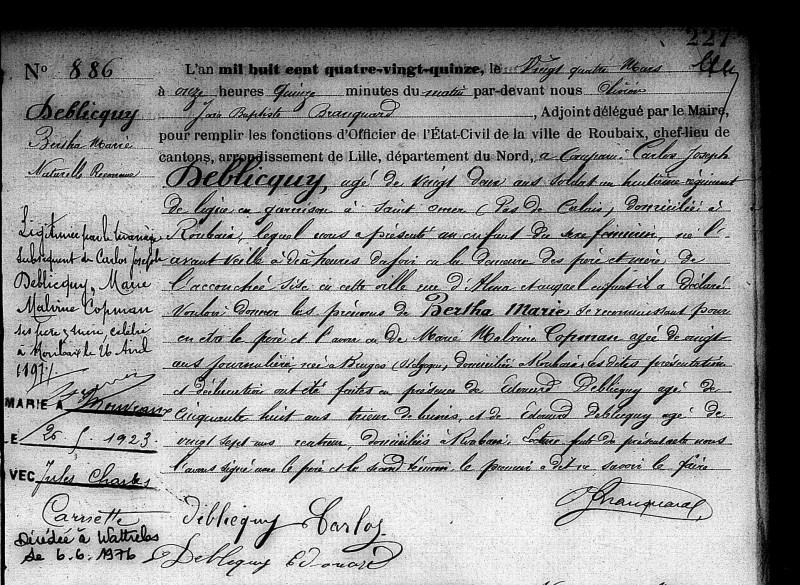 227
N° 886
Deblicquy
Bertha Marie
Naturelle Reconnue
Légitimée par le mariage
subséquent de Carlos Joseph
Deblicquy, & Marie
Malvine Copman
ses père & mère, célébré
à Roubaix le 26 Avril
1897
MARIE A Mouveaux
LE 26 5 1923
AVEC Jules Charles
Carrette
Décédée à Wattrelos
le 6.6.1976
L'an mil huit cent quatre-vingt-quinze, le Vingt quatre Mars
à onze heures Quinze minutes du matin par-devant nous
Jean Baptiste Branquart, Adjoint délégué par le Maire,
pour remplir les fonctions d'Officier de l'État-Civil de la ville de Roubaix, chef-lieu de
cantons, arrondissement de Lille, département du Nord, a Comparu Carlos Joseph
Deblicquy, agé de vingt deux ans soldat au huitième régiment
de ligne en garnison à Saint Omer (Pas de Calais) domicilié à
Roubaix, lequel nous a présenté un enfant du sexe féminin, né l'
avant veille à dix heures du soir en la demeure des père et mère de
l'accouchée sise en cette ville rue d' auquel enfant il a déclaré
vouloir donner les prénoms de Bertha Marie se reconnaissant pour
en être le père et l'avoir eu de Marie Malvina Copman agée de vingt
ans journalière née à Bruges (Belgique) domiciliée à Roubaix, Lesdites présentation
et déclaration ont été faites en présence de Edouard Deblicquy agé de
cinquante huit ans trieur de et de Edouard deblicquy agé de
vingt sept ans rentreur, domiciliés à Roubaix. Lecture faite du présent acte nous
l'avons signé avec le père et le second témoin, le premier a dit ne savoir le faire
Branquart
Deblicquy Carlos
Deblicquy Edouard